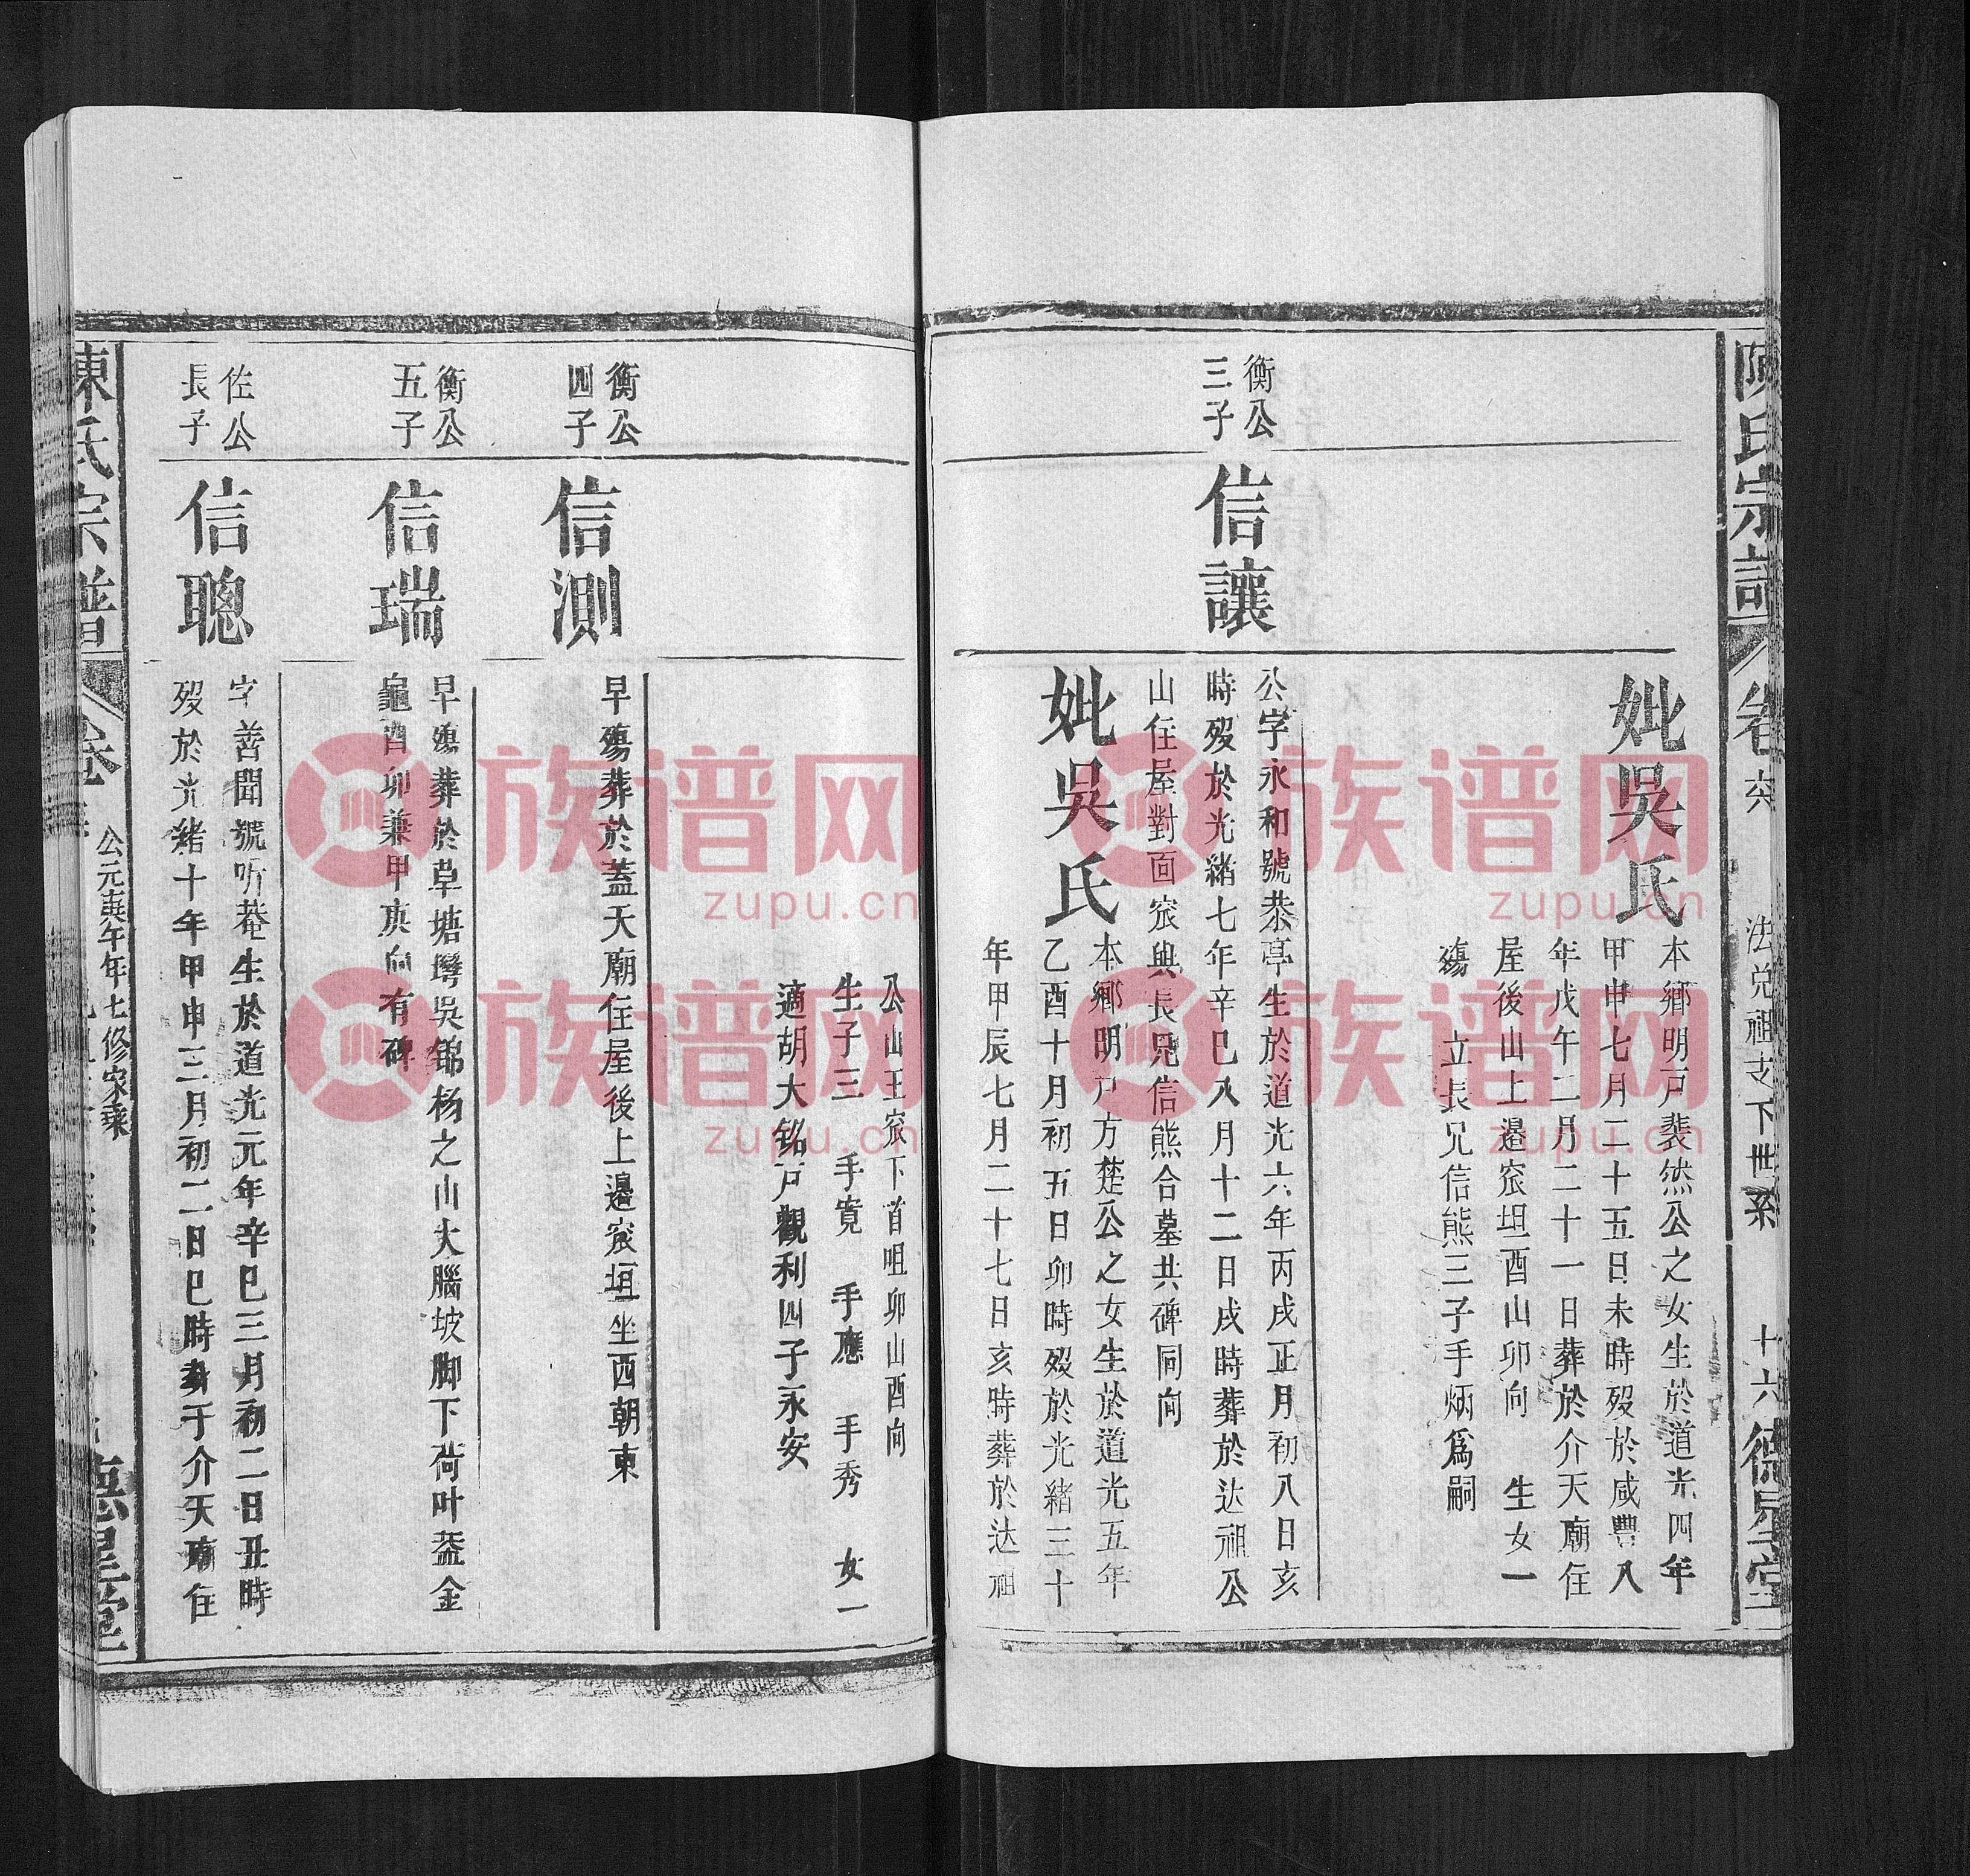 陳氏宗譜
卷六
法兌祖支下世系
十六
德星堂
妣吳氏
本鄉明戸裴然公之女生於道光四年
甲申七月二十五日未時殁於咸豐八
年戊午二月二十一日葬於介天廟住
屋後山上邉窊坦酉山卯向 生女一
殤 立長兄信熊三子手炳爲嗣
衡公
三子
信讓
公字永和號恭亭生於道光六年丙戌正月初八日亥
時殁於光緒七年辛巳八月十二日戌時葬於达祖公
山住屋對面窊與長兄信熊合墓共碑同向
妣吳氏
本鄉明戸方楚公之女生於道光五年
乙酉十月初五日卯時殁於光緒三十
年甲辰七月二十七日亥時葬於达祖
公山王窊下首咀卯山酉向
生子三 手寬 手應 手秀 女一
適胡大铭戸觀利四子永安
衡公
四子
信測
早殤葬於蓋天廟住屋後上邉窊垣坐西朝東
衡公
五子
信瑞
早殤葬於草塘塆吳錦杨之山大腦坡脚下荷叶葢金
龜酉卯兼甲庚向有碑
佐公
長子
信聰
字善聞號听菴生於道光元年辛巳三月初二日丑時
殁於光緒十年甲申三月初二日巳時葬于介天廟住
陳氏宗譜
卷
公元庚午年七修家乘
德星堂
族谱网
zupu.cn
族谱网
zupu.cn
族谱网
zupu.cn
族谱网
zupu.cn